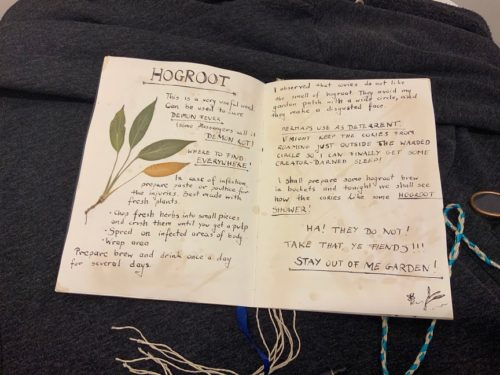 HOGROOT
This is a very useful weed.
Can be used to cure
DEMON FEVER
(some Messengers call it
DEMON ROT)
WHERE TO FIND:
EVERYWHERE!
In case of infection,
prepare paste or poultice for
the injuries. Best made with
fresh plants.
· Chop fresh herbs into small pieces
and crush them until you get a pulp
· Spred on infected areas of body
· Wrap area
Prepare brew and drink once a day
for several days.
I observed that cories do not like
the smell of hogroot. They avoid my
garden patch with a wide circle, and
they make a disgusted face.
PERHAPS USE AS DETERRENT.
I MIGHT KEEP THE CORIES FROM
ROAMING JUST OUTSIDE THE WARDED
CIRCLE SO I CAN FINALLY GET SOME
CREATOR-DARNED SLEEP!
I shall prepare some hogroot brew
in buckets and tonight we shall see
how the cories like some HOGROOT
SHOWER!
HA! THEY DO NOT!
TAKE THAT YE FIENDS!!!
STAY OUT OF ME GARDEN!